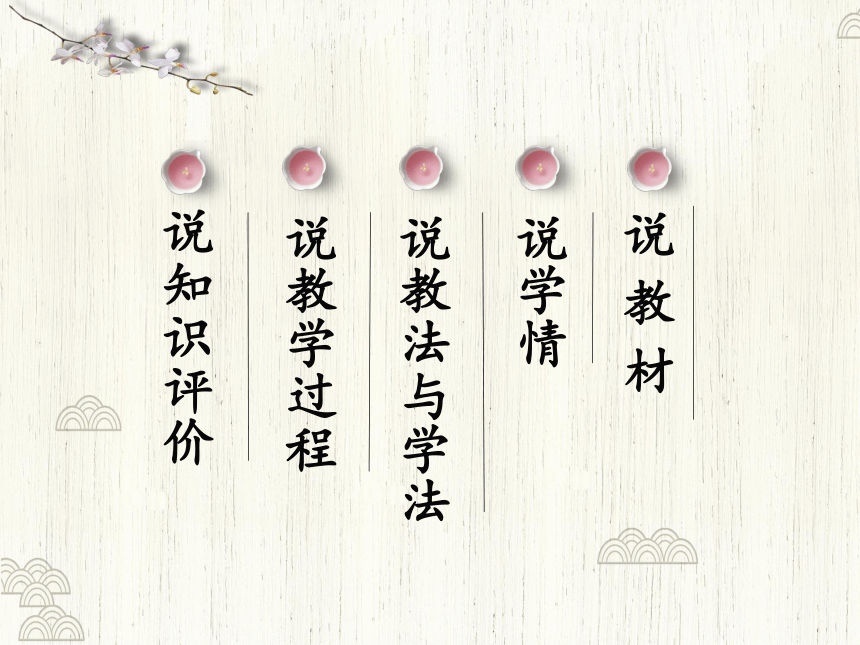 说教材
说学情
说教法与学法
说教学过程
说知识评价